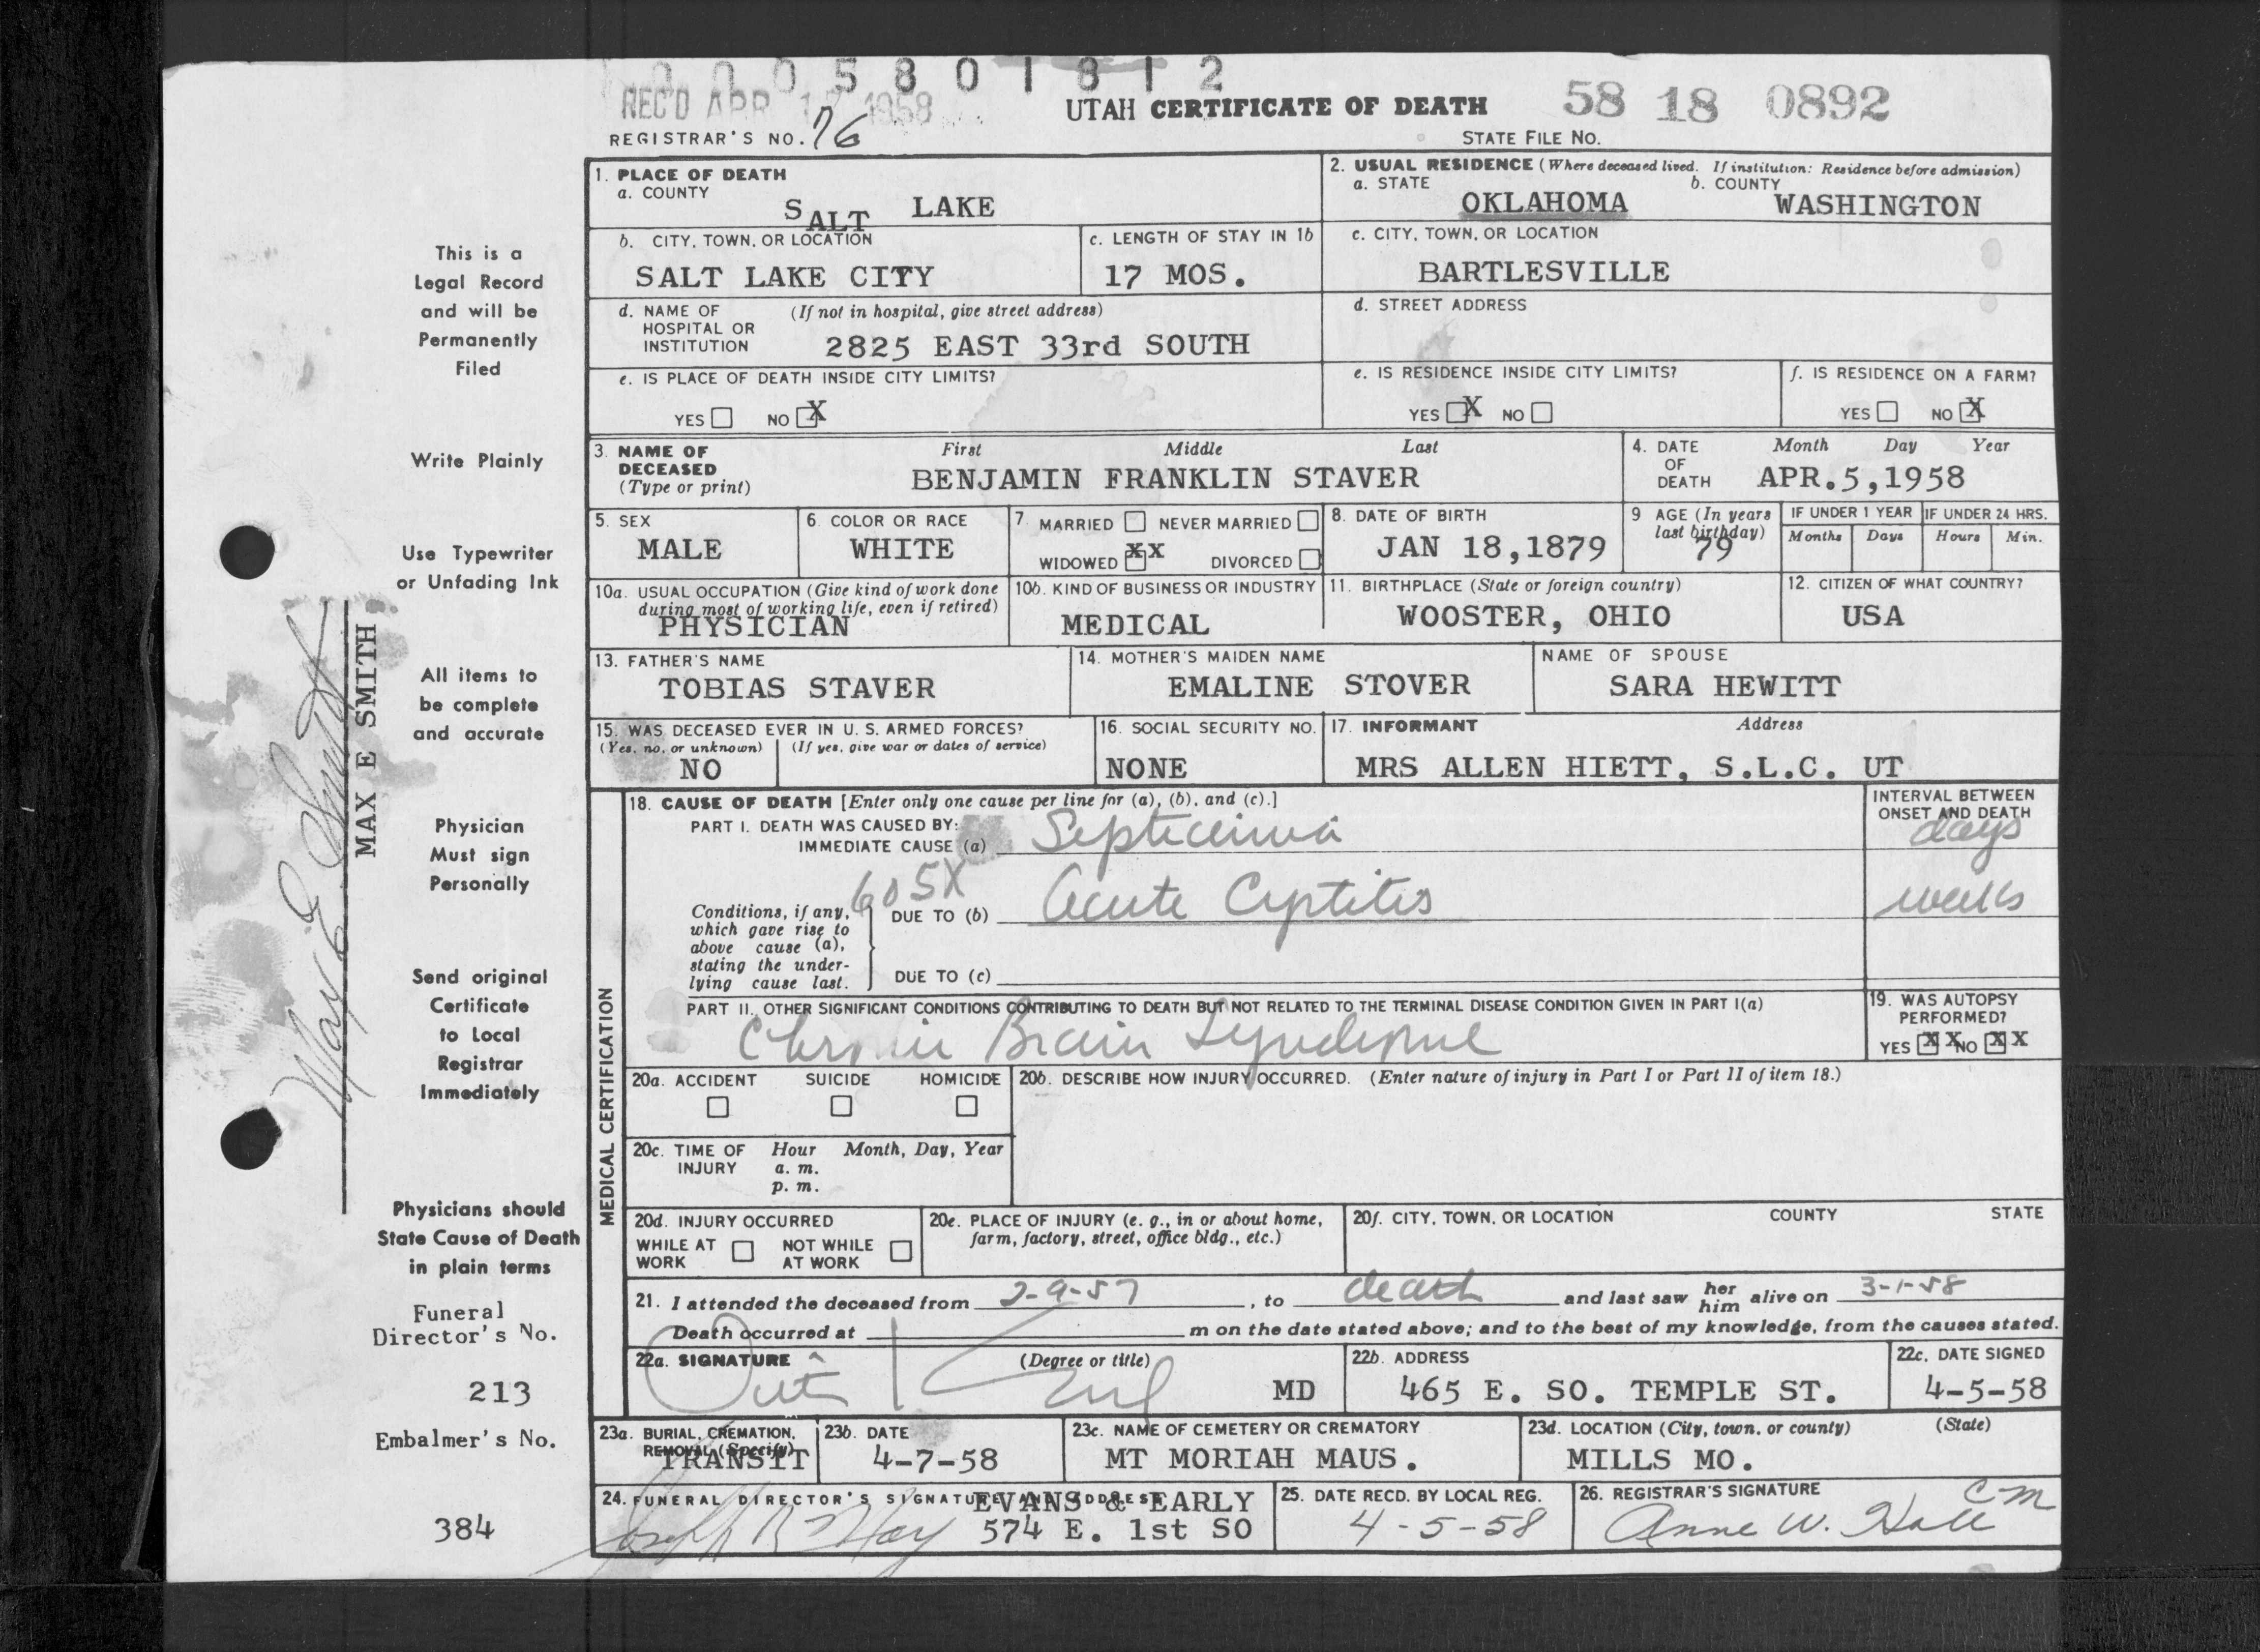 0005801812
REC'D APR 17 1958
UTAH CERTIFICATE OF DEATH 58 18 0892
REGISTRAR'S NO. 76 STATE FILE NO.
1. PLACE OF DEATH
a. COUNTY
SALT LAKE
2. USUAL RESIDENCE (Where deceased lived. If institution: Residence before admission)
a. STATE b. COUNTY
OKLAHOMA WASHINGTON
b. CITY, TOWN, OR LOCATION
SALT LAKE CITY
c. LENGTH OF STAY IN 1b
17 MOS.
c. CITY, TOWN, OR LOCATION
BARTLESVILLE
d. NAME OF (If not in hospital, give street address)
HOSPITAL OR
INSTITUTION 2825 EAST 33rd SOUTH
d. STREET ADDRESS
e. IS PLACE OF DEATH INSIDE CITY LIMITS?
YES NO X
e. IS RESIDENCE INSIDE CITY LIMITS?
YES X NO
f. IS RESIDENCE ON A FARM?
YES NO X
3. NAME OF First Middle Last
DECEASED
(Type or print) BENJAMIN FRANKLIN STAVER
4. DATE Month Day Year
OF
DEATH APR.5,1958
5. SEX
MALE
6. COLOR OR RACE
WHITE
7. MARRIED NEVER MARRIED
WIDOWED XX DIVORCED
8. DATE OF BIRTH
JAN 18,1879
9 AGE (In years
last birthday)
79
IF UNDER 1 YEAR IF UNDER 24 HRS.
Months Days Hours Min.
10a. USUAL OCCUPATION (Give kind of work done
during most of working life, even if retired)
PHYSICIAN
10b. KIND OF BUSINESS OR INDUSTRY
MEDICAL
11. BIRTHPLACE (State or foreign country)
WOOSTER, OHIO
12. CITIZEN OF WHAT COUNTRY?
USA
13. FATHER'S NAME
TOBIAS STAVER
14. MOTHER'S MAIDEN NAME
EMALINE STOVER
NAME OF SPOUSE
SARA HEWITT
15. WAS DECEASED EVER IN U. S. ARMED FORCES?
(Yes, no, or unknown) (If yes, give war or dates of service)
NO
16. SOCIAL SECURITY NO.
NONE
17. INFORMANT Address
MRS ALLEN HIETT, S.L.C. UT
MEDICAL CERTIFICATION
18. CAUSE OF DEATH [Enter only one cause per line for (a), (b), and (c).]
PART I. DEATH WAS CAUSED BY:
IMMEDIATE CAUSE (a) Septicemia
INTERVAL BETWEEN
ONSET AND DEATH
days
605X
Conditions, if any,
which gave rise to
above cause (a),
stating the under-
lying cause last.
DUE TO (b) acute Cystitis weeks
DUE TO (c)
PART II. OTHER SIGNIFICANT CONDITIONS CONTRIBUTING TO DEATH BUT NOT RELATED TO THE TERMINAL DISEASE CONDITION GIVEN IN PART I(a)
Chronic Brain Syndrome
19. WAS AUTOPSY
PERFORMED?
YES X X NO X X
20a. ACCIDENT SUICIDE HOMICIDE
20b. DESCRIBE HOW INJURY OCCURRED. (Enter nature of injury in Part I or Part II of item 18.)
20c. TIME OF Hour Month, Day, Year
INJURY a. m.
p. m.
20d. INJURY OCCURRED
WHILE AT NOT WHILE
WORK AT WORK
20e. PLACE OF INJURY (e. g., in or about home,
farm, factory, street, office bldg., etc.)
20f. CITY, TOWN, OR LOCATION COUNTY STATE
21. I attended the deceased from 2-9-57, to death and last saw her him alive on 3-1-58
Death occurred at m on the date stated above; and to the best of my knowledge, from the causes stated.
22a. SIGNATURE (Degree or title)
MD
22b. ADDRESS
465 E. SO. TEMPLE ST.
22c. DATE SIGNED
4-5-58
23a. BURIAL, CREMATION,
REMOVAL (Specify)
TRANSIT
23b. DATE
4-7-58
23c. NAME OF CEMETERY OR CREMATORY
MT MORIAH MAUS.
23d. LOCATION (City, town, or county) (State)
MILLS MO.
24. FUNERAL DIRECTOR'S SIGNATURE AND ADDRESS
EVANS & EARLY
Joseph R May 574 E. 1st SO
25. DATE RECD. BY LOCAL REG.
4-5-58
26. REGISTRAR'S SIGNATURE
Anne W. Hall cm
This is a
Legal Record
and will be
Permanently
Filed
Write Plainly
Use Typewriter
or Unfading Ink
All items to
be complete
and accurate
Physician
Must sign
Personally
Send original
Certificate
to Local
Registrar
Immediately
Physicians should
State Cause of Death
in plain terms
Funeral
Director's No.
213
Embalmer's No.
384
Max E Smith
MAX E SMITH